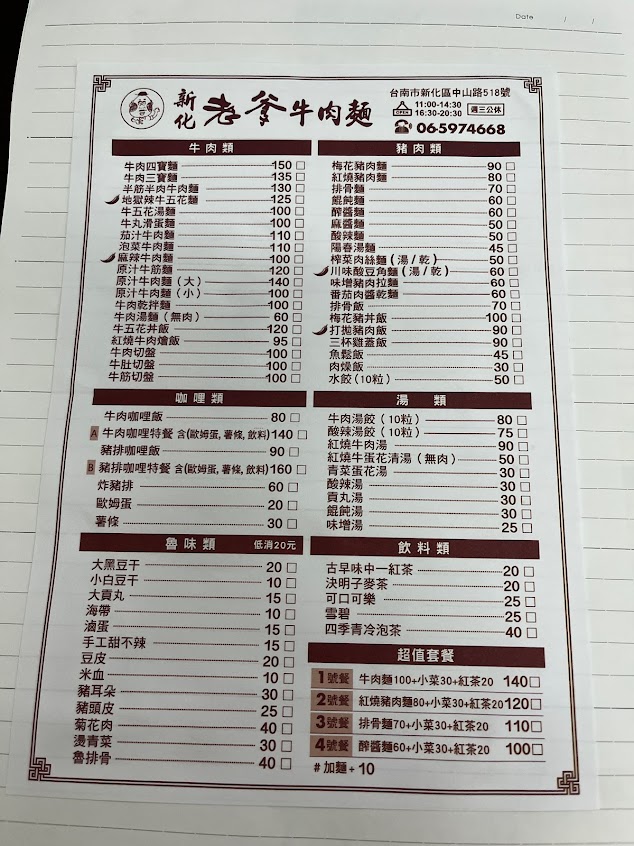 Date / /
新化 老爹牛肉麵
台南市新化區中山路518號
OPEN 11:00-14:30 16:30-20:30 週三公休
06-5974668
牛肉類
牛肉四寶麵 150
牛肉三寶麵 135
半筋半肉牛肉麵 130
地獄辣牛五花麵 125
牛五花湯麵 100
牛丸滑蛋麵 100
茄汁牛肉麵 110
泡菜牛肉麵 110
麻辣牛肉麵 100
原汁牛筋麵 120
原汁牛肉麵(大) 140
原汁牛肉麵(小) 100
牛肉乾拌麵 100
牛肉湯麵(無肉) 60
牛五花丼飯 120
紅燒牛肉燴飯 95
牛肉切盤 100
牛肚切盤 100
牛筋切盤 100
豬肉類
梅花豬肉麵 90
紅燒豬肉麵 80
排骨麵 70
餛飩麵 60
醡醬麵 60
麻醬麵 50
酸辣麵 50
陽春湯麵 45
榨菜肉絲麵(湯/乾) 60
川味酸豆角麵(湯/乾) 60
味增豬肉拉麵 60
番茄肉醬乾麵 60
排骨飯 70
梅花豬丼飯 100
打拋豬肉飯 90
三杯雞蓋飯 90
魚鬆飯 45
肉燥飯 30
水餃(10粒) 50
咖哩類
牛肉咖哩飯 80
A 牛肉咖哩特餐 含(歐姆蛋,薯條,飲料) 140
豬排咖哩飯 90
B 豬排咖哩特餐 含(歐姆蛋,薯條,飲料) 160
炸豬排 60
歐姆蛋 20
薯條 30
湯類
牛肉湯餃(10粒) 80
酸辣湯餃(10粒) 75
紅燒牛肉湯 90
紅燒牛蛋花清湯(無肉) 50
青菜蛋花湯 30
酸辣湯 30
貢丸湯 30
餛飩湯 30
味增湯 25
魯味類 低消20元
大黑豆干 20
小白豆干 10
大貢丸 15
海帶 10
滷蛋 15
手工甜不辣 15
豆皮 20
米血 10
豬耳朵 30
豬頭皮 25
菊花肉 40
燙青菜 30
魯排骨 40
飲料類
古早味中一紅茶 20
決明子麥茶 20
可口可樂 25
雪碧 25
四季青冷泡茶 40
超值套餐
1號餐 牛肉麵100+小菜30+紅茶20 140
2號餐 紅燒豬肉麵80+小菜30+紅茶20 120
3號餐 排骨麵70+小菜30+紅茶20 110
4號餐 醡醬麵60+小菜30+紅茶20 100
#加麵+10